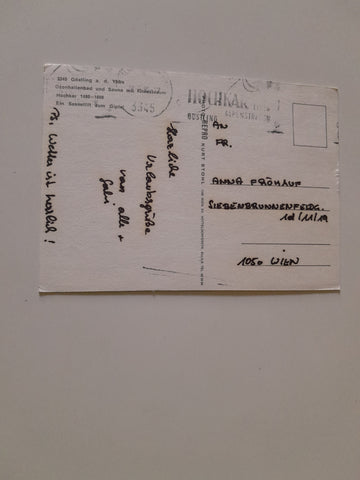 3345 Göstling a. d. Ybbs
Ozonhallenbad und Sauna mit Kinderbecken
Hochkar 1480-1808
Ein Sessellift zum Gipfel
3345
HOCHKAR
GÖSTLING
Herzliche
Urlaubsgrüße
von alle +
Gabi
Ps. Wetter ist herrlich!
REPRO KURT STOHL
AN
FR.
ANNA FRÜHAUF
SIEBENBRUNNENFELDG.
1d/11/19
1050 WIEN